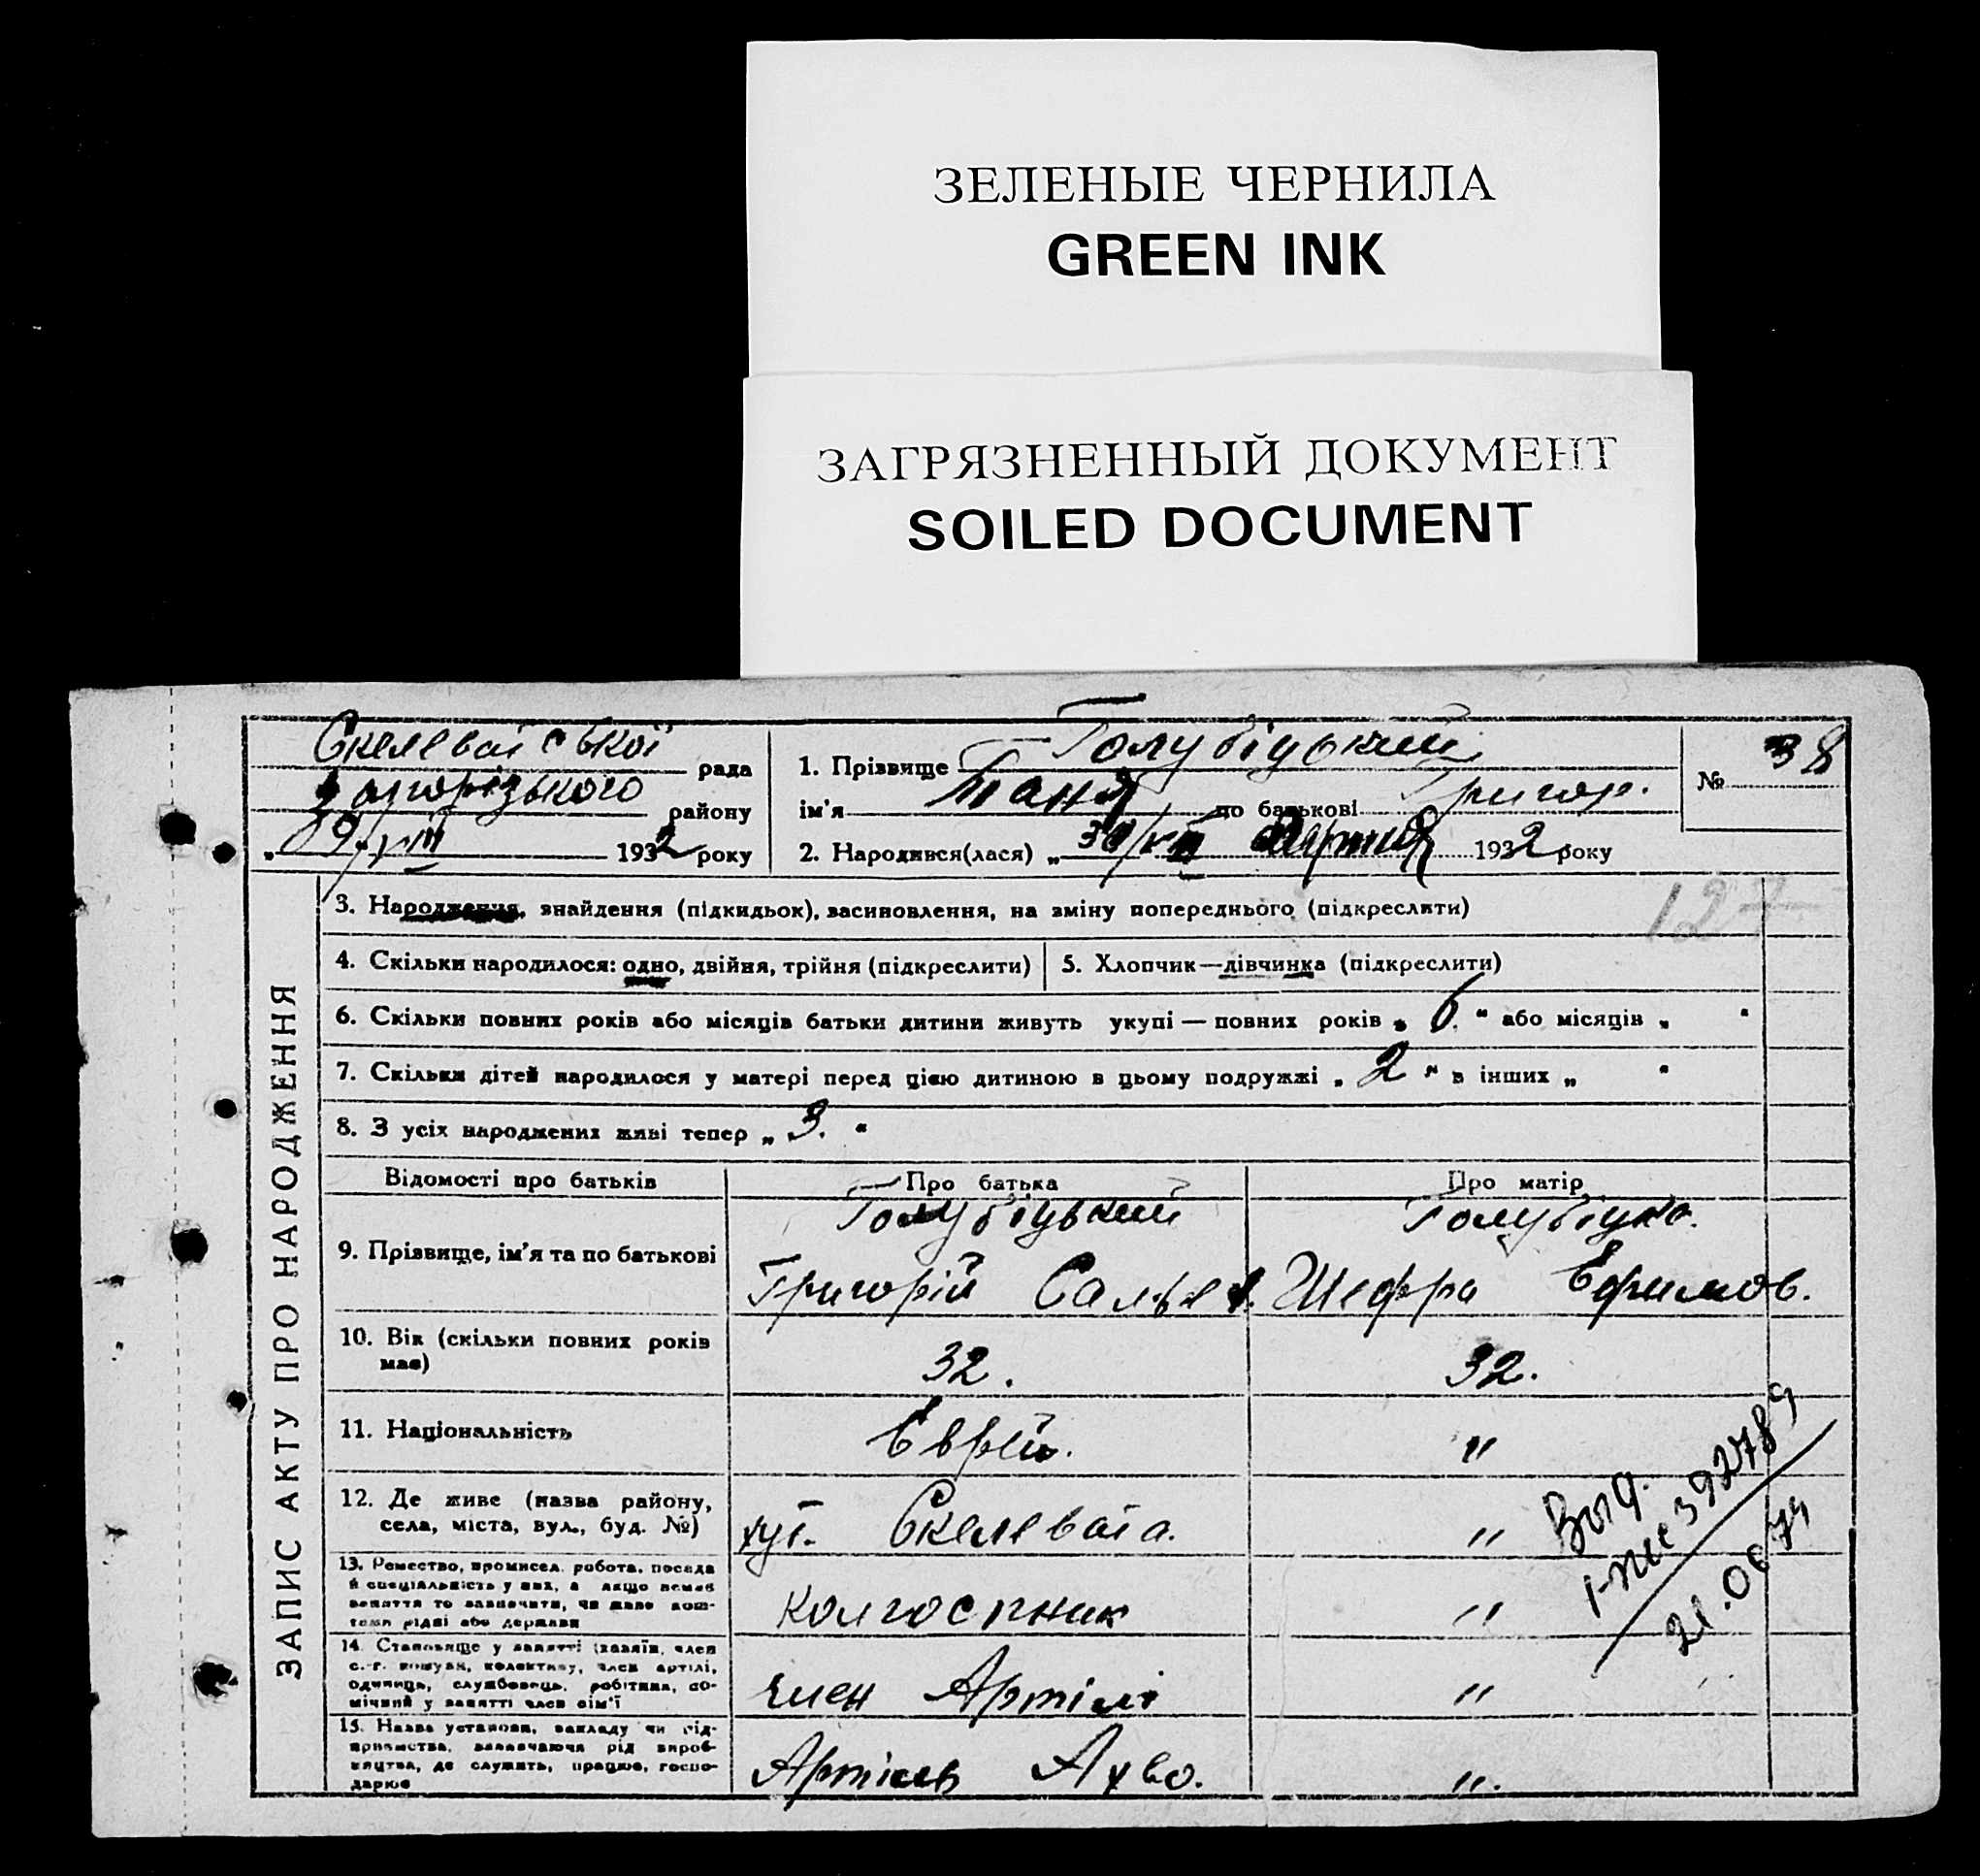 ЗЕЛЕНЫЕ ЧЕРНИЛА
GREEN INK
ЗАГРЯЗНЕННЫЙ ДОКУМЕНТ
SOILED DOCUMENT
Скелеваї ської рада
району
„ 09/VIII 1932 року
1. Прізвище Голубіцький
ім'я Таня по батькові Григор.
2. Народився(лася) „ 30/ 1932 року
№ 38
ЗАПИС АКТУ ПРО НАРОДЖЕННЯ
3. Народження, знайдення (підкидьок), васиновлення, на зміну попереднього (підкреслити)
127
4. Скільки народилося: одно, двійня, трійня (підкреслити)
5. Хлопчик—дівчинка (підкреслити)
6. Скільки повних років або місяців батьки дитини живуть укупі — повних років „ 6. “ або місяців „ “
7. Скільки дітей народилося у матері перед цією дитиною в цьому подружжі „ 2 “ в інших „ “
8. З усіх народжених живі тепер „ 3. “
Відомості про батьків
Про батька
Про матір
9. Прізвище, ім'я та по батькові
Голубіцький
Григорій
Голубіцка.
Шефра Ефимов.
10. Вік (скільки повних років
має)
32.
32.
11. Національність
Еврей.
"
12. Де живе (назва району,
села, міста, вул., буд. №)
хут. Скелеваїа.
"
13. Ремество, промисел, робота, посада
й спеціальність у них, а якщо немає
заняття то зазначити, чи живе кош-
тами рідні або держави
колгоспник
"
14. Становище у занятті (хазяїн, член
с.-г. комуни, колективу, член артілі,
одиниць, службовець, робітник, до-
мічний у занятті член сім'ї
член Артілі
"
15. Назва установи, закладу чи під-
приємства, зазначаючи рід вироб-
ництва, де служить, працює, госпо-
дарює
Артіль Ахво.
".
Выд.
392789
21.06 74